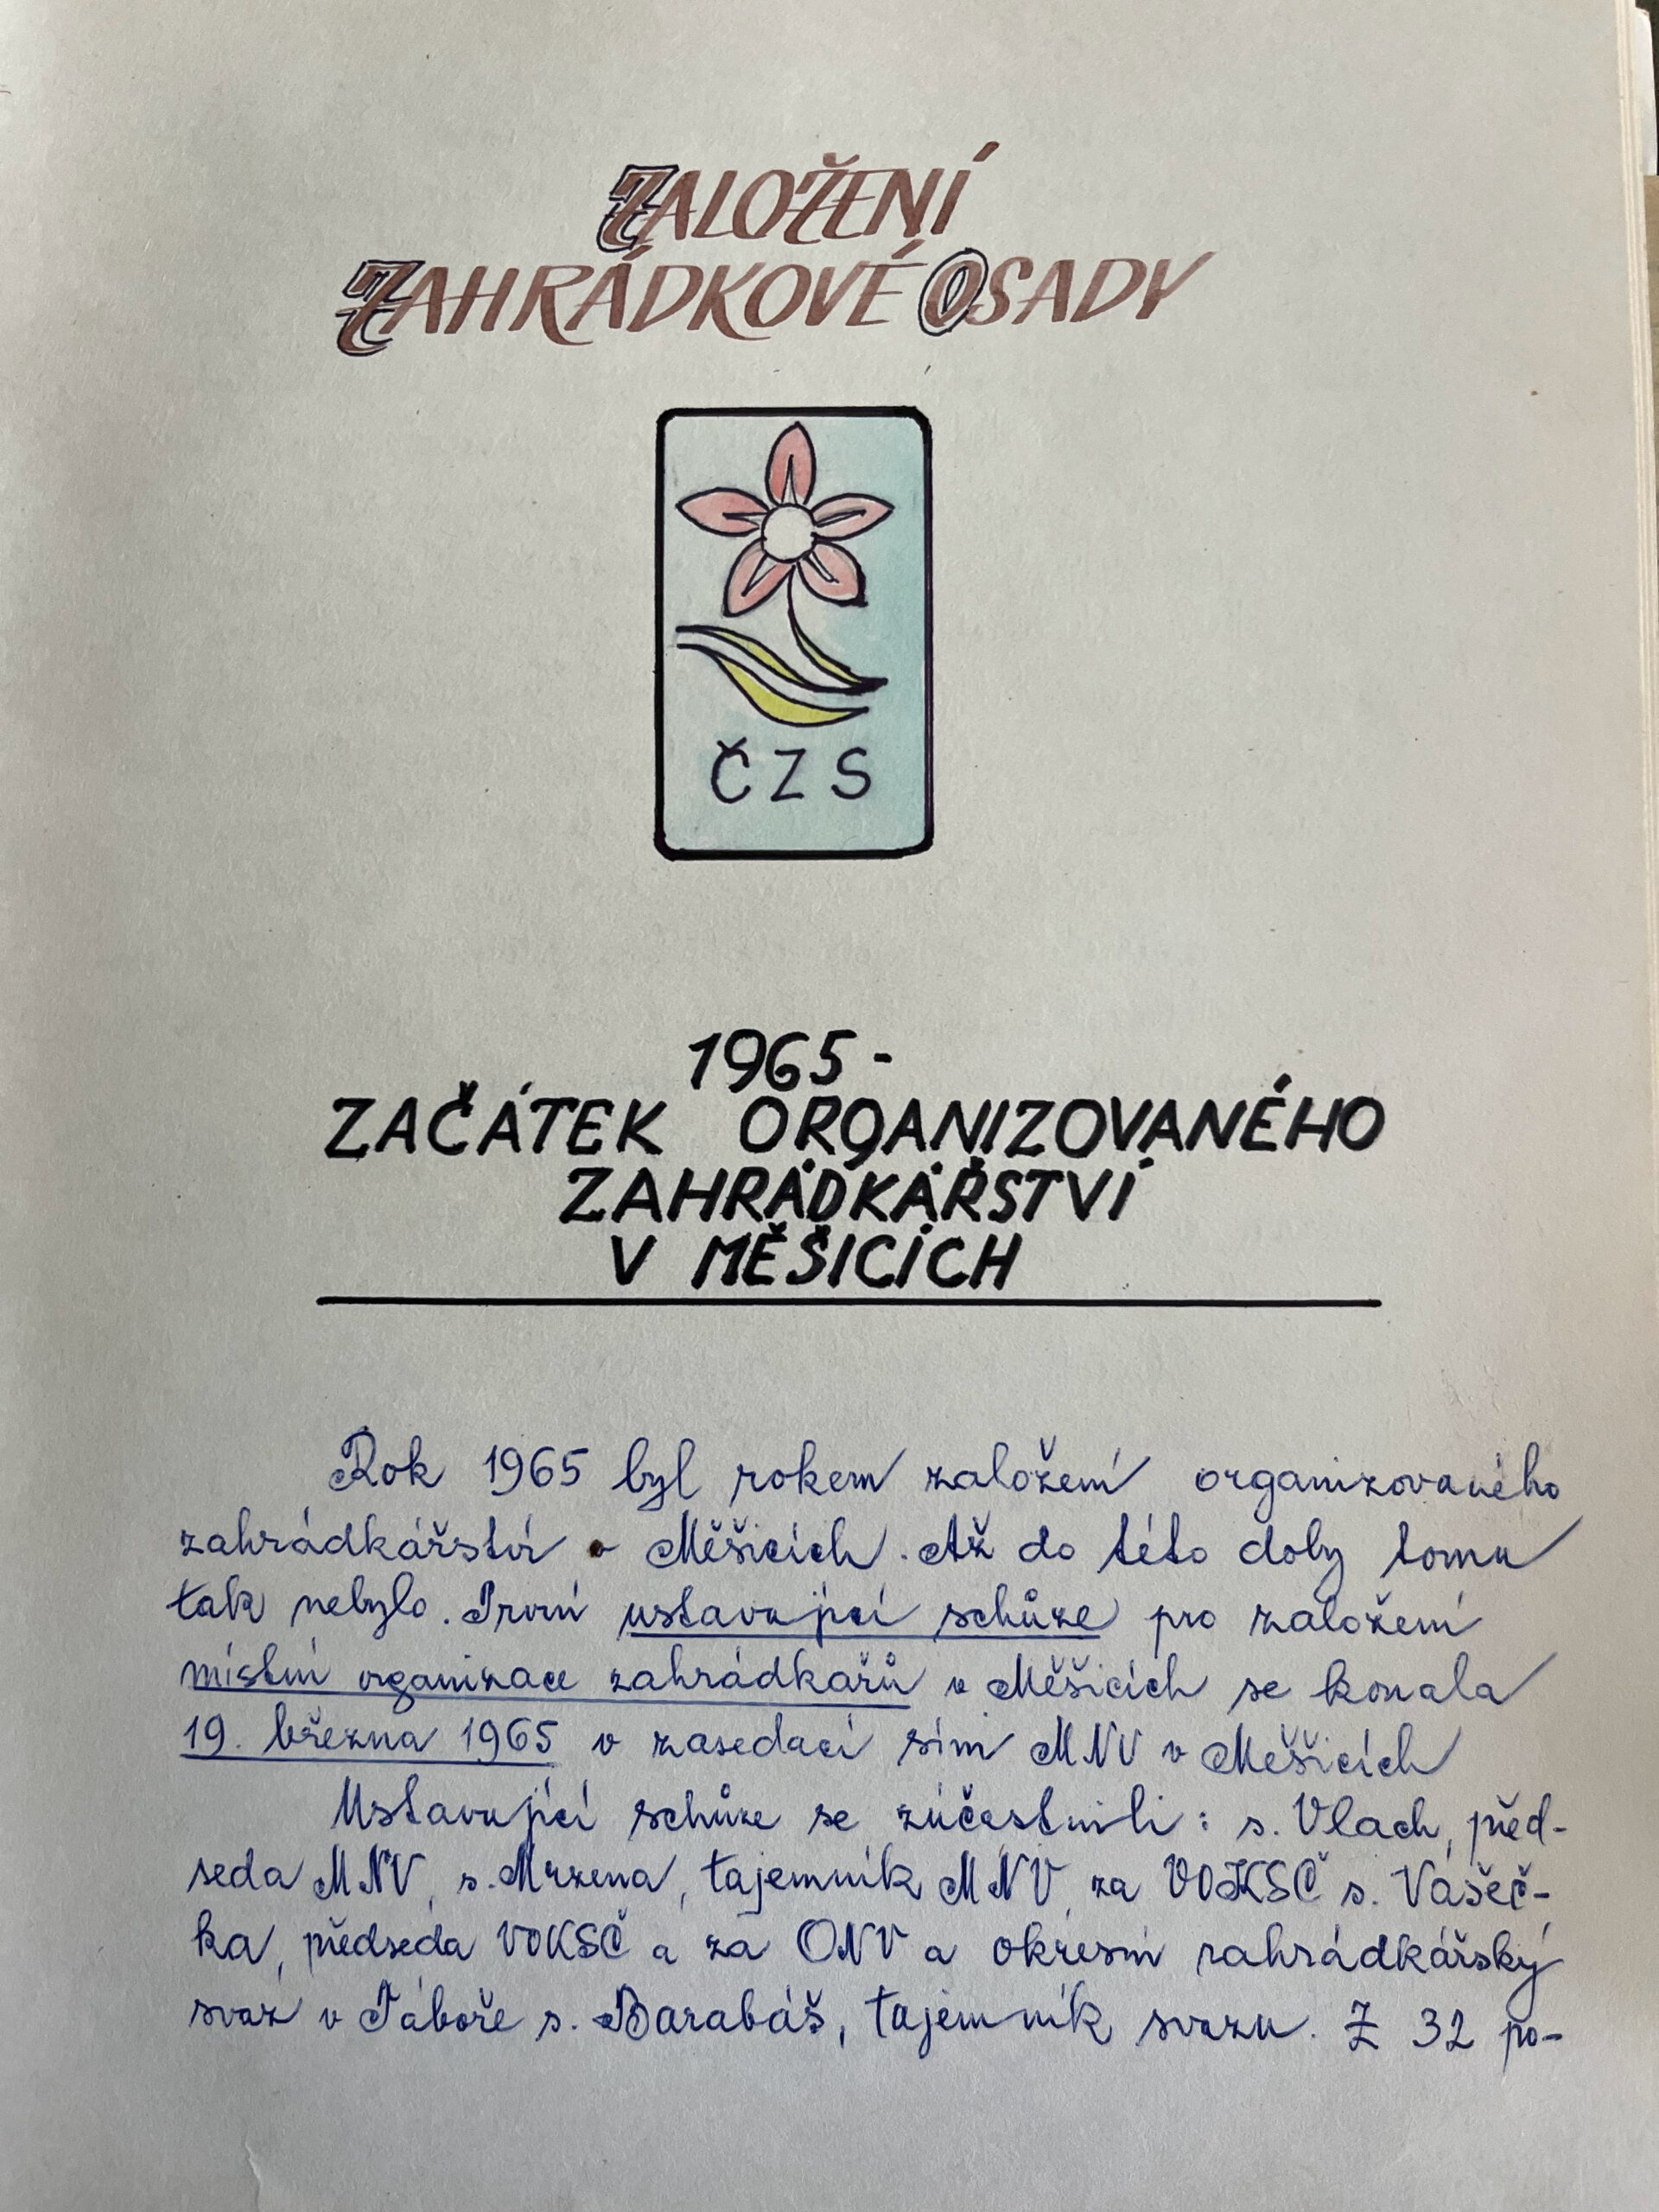 ZALOŽENÍ
ZAHRÁDKOVÉ OSADY
ČZS
1965 -
ZAČÁTEK ORGANIZOVANÉHO
ZAHRÁDKÁŘSTVÍ
V MĚŠICÍCH
Rok 1965 byl rokem založení organizovaného
zahrádkářství v Měšicích. Až do této doby tomu
tak nebylo. První ustavující schůze pro založení
místní organizace zahrádkářů v Měšicích se konala
19. března 1965 v zasedací síni MNV v Měšicích
Ustavující schůze se zúčastnili: s. Vlach, před-
seda MNV, s. Mrzena, tajemník MNV, za VOKSČ s. Vášeč-
ka, předseda VOKSČ a za ONV a okresní zahrádkářský
svaz v Táboře s. Barabáš, tajemník svazu. Z 32 po-